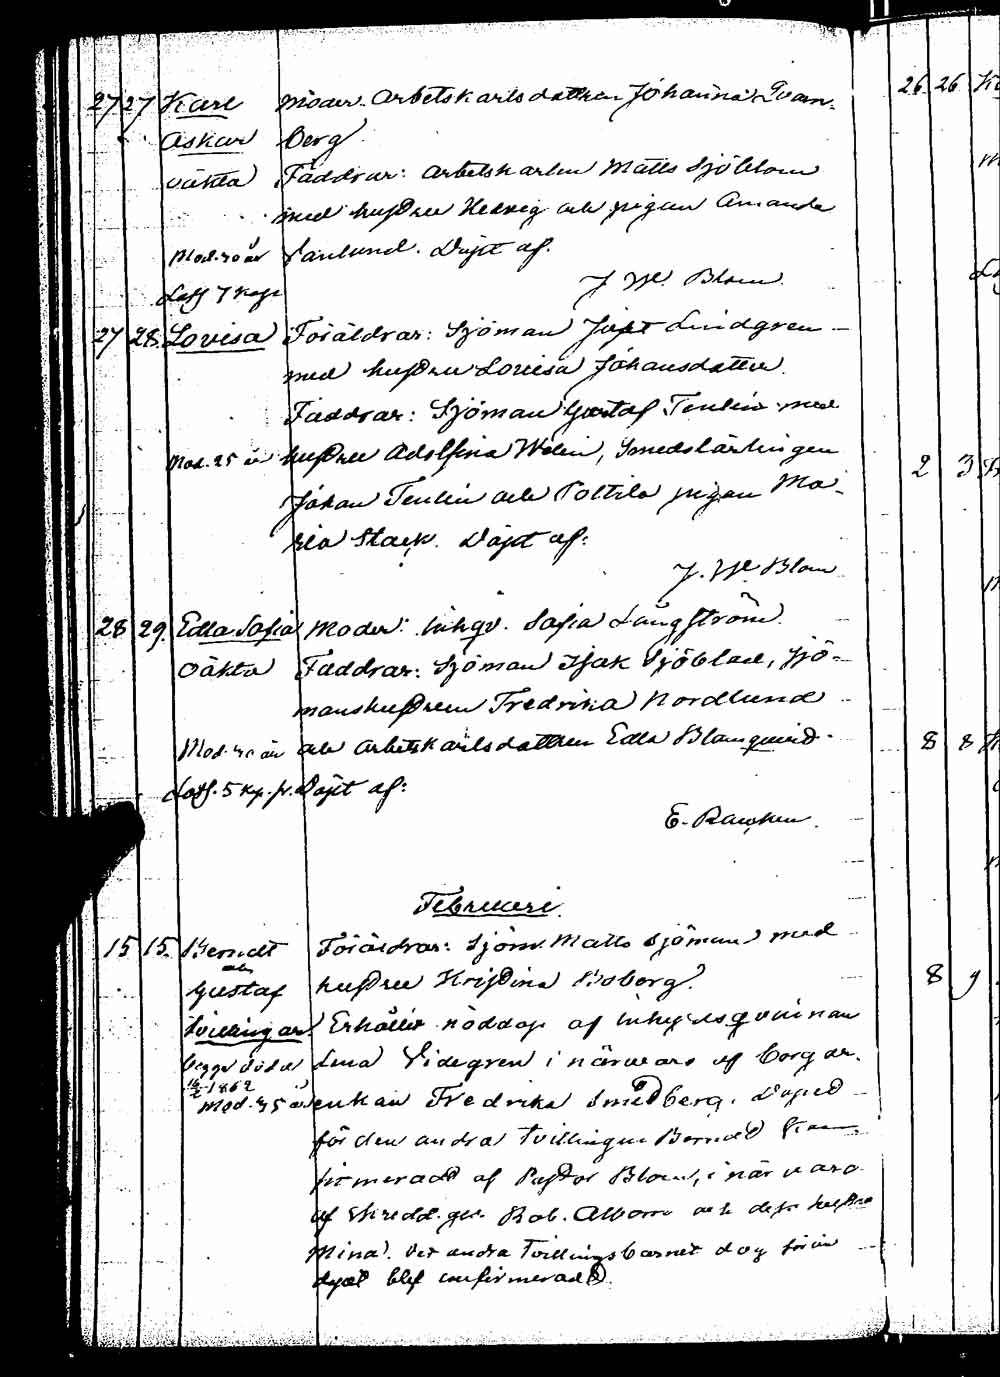 27 27 Karl Moder: Arbetskarlsdottren Johanna Qvarn-
Askar berg
oäkta Faddrar: Arbetskarlen Matts Sjöblom
med hustru Hedvig och pigan Amanda
Mod. 20 år Varlund. Döpt af.
J. W. Blom
Lösf 7 kop
27 28. Lovisa Föräldrar: Sjöman Lindgren
med hustru Lovisa Johansdotter.
Faddrar: Sjöman Gustaf Tenlin med
Mod. 25 år hustru Adolfina Welin, Smedslärlingen
Johan Tenlin och Poltila pigan Ma-
ria Stack. Döpt af:
J. W. Blom
28 29. Edla Sofia Moder: Inhqv. Sofia Långström.
Oäkta Faddrar: Sjöman Isak Sjöblad, Sjö-
manshustrun Fredrika Nordlund
Mod. år och arbetskarlsdottren Edla Blomqvist.
Lösf. 5 kop. sr. Döpt af:
E. Rancken.
Februari.
15 15. Berndt Föräldrar: Sjöm. Matts Sjöman med
och
Gustaf hustru Kristina Boberg.
Tvillingar Erhållit nöddop af inhysesqvinnan
begge döde Lena Videgren i närvaro af borgar-
1862
Mod. 35 år enkan Fredrika Smedberg. Dopet
för den andra tvillingen Berndt kon-
firmerades af Pastor Blom, i närvaro
af Skredd. ges. Rob. Alborn och dess hustru
Mina. Det andra Tvillingsbarnet dog förän
dopet blef confirmeradt.
26 26
2 3
8 8
8 9